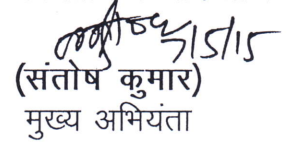 7/5/15
(संतोष कुमार)
मुख्य अभियंता